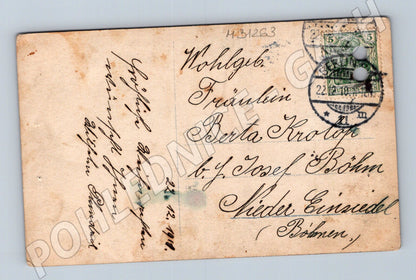 H31263
Wohlgeb.
Fräulein
Berta Krolop
b. J. Josef Böhm
Nieder Einsiedel
(Böhmen.)
Fröhliche Weihnachten
wünscht Ihnen
22.12.1910
POHLEDNICE
5